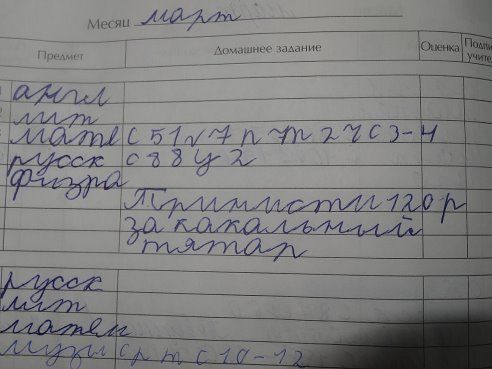 Месяц март
Предмет Домашнее задание Оценка Подпи учите
англ
лит
мате с 51 √ 7 п 7 т 24 с 3-4
русск с 88 у 2
физра
Принисти 120 р
за какальный
тятар
русск
лит
матем
музы с р т с 10-12